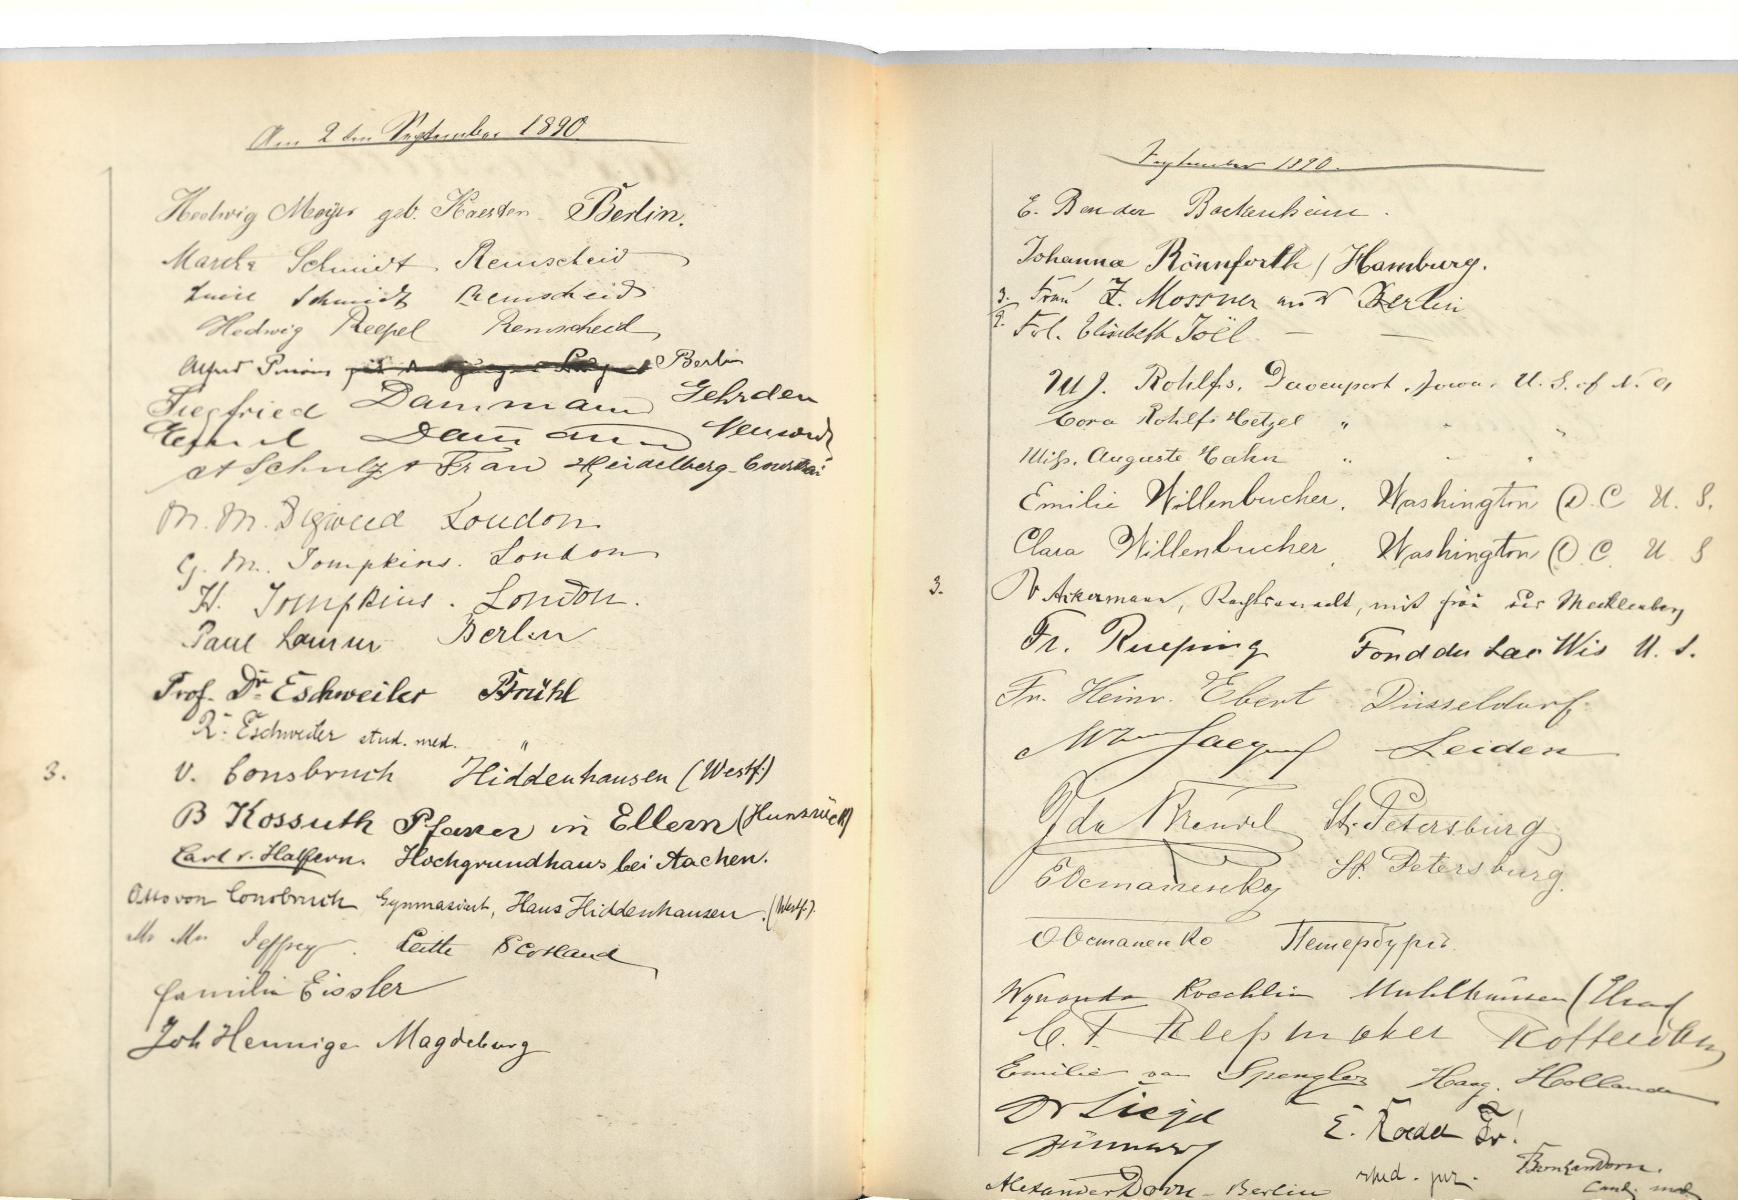 Am 2ten September 1890
Hedwig Meyer geb. Karsten Berlin.
Martha Schmidt, Remscheid
Luise Schmidt Remscheid
Hedwig Reepel Remscheid
Alfred Berlin
Siegfried Dammann Gehrden
Dammann
A Schulz & Frau Heidelberg
M. M. London
G. M. Tompkins. London
H. Tompkins. London.
Paul Berlin
Prof. Dr. Eschweiler Brühl
R. Eschweiler stud. med. "
3.
v. Consbruch Hiddenhausen (Westf.)
B Kossuth Pfarrer in Ellern (Hunsrück)
Carl v. Halfern. Hochgrundhaus bei Aachen.
Otto von Consbruch Gymnasiast, Haus Hiddenhausen. (Westf.)
Jeffrey. Leith Scotland
Familie Eissler
Joh Hennige Magdeburg
September 1890.
E. Bender Bockenheim.
Johanna Rönnforth / Hamburg.
3. Frau Z. Mossner und Berlin
9. Frl. Elisabeth Joël — —
M J. Rohlfs, Davenport, Iowa. U. S. of N. A
Cora Rohlfs Hetzel " " "
Miss. Auguste Hahn " " "
Emilie Willenbucher, Washington D. C U. S.
Clara Willenbucher, Washington D. C. U S
3.
Dr Ackermann, Rechtsanwalt, mit Frau Mecklenburg
Fr. Rueping Fond du Lac Wis U. S.
Fr. Heinr. Ebert Düsseldorf.
Leiden
Ida St. Petersburg
Е Остапенко St. Petersburg.
О Остапенко Петербургъ.
Koechlin Mulhausen (Elsad
C. F. Klepmaker Rotterdam
Emilie van Spengler Haag. Holland
Dr Siegel
E. Roedel Fr!
Alexander Dorn - Berlin
Dorn.